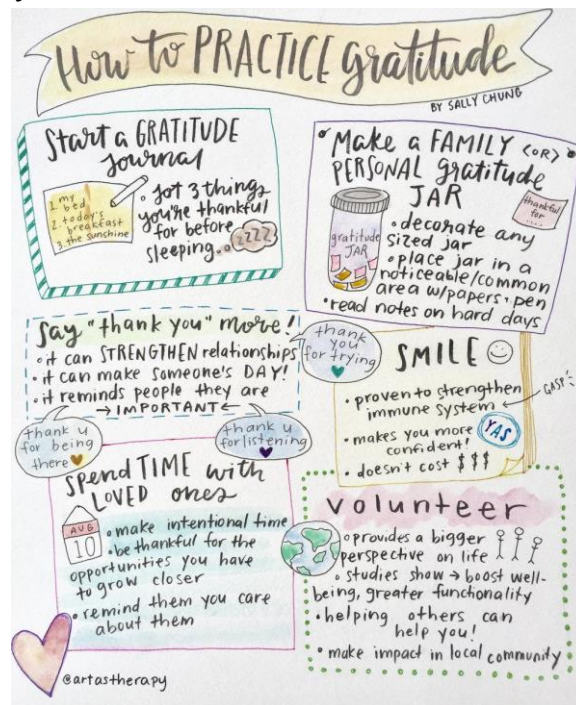 How to PRACTICE gratitude
BY SALLY CHUNG
Start a GRATITUDE
journal
1. my
bed
2. today's
breakfast
3. the sunshine
• jot 3 things
you're thankful
for before
sleeping...
zzzz
Make a FAMILY <OR>
PERSONAL gratitude
JAR
thankful
for
....
gratitude
JAR
• decorate any
sized jar
• place jar in a
noticeable/common
area w/papers + pen
• read notes on hard days
Say "thank you" more!
• it can STRENGTHEN relationships
• it can make someone's DAY!
• it reminds people they are
→ IMPORTANT ←
thank
you
for trying
thank u
for being
there
thank u
for listening
SMILE
• proven to strengthen
immune system ← GASP!
• makes you more
confident!
YAS
• doesn't cost $$$
Spend TIME with
LOVED ones
AUG
10
• make intentional time
• be thankful for the
opportunities you have
to grow closer
• remind them you care
about them
volunteer
• provides a bigger
perspective on life
• studies show → boost well-
being, greater functionality
• helping others can
help you!
• make impact in local community
@artastherapy